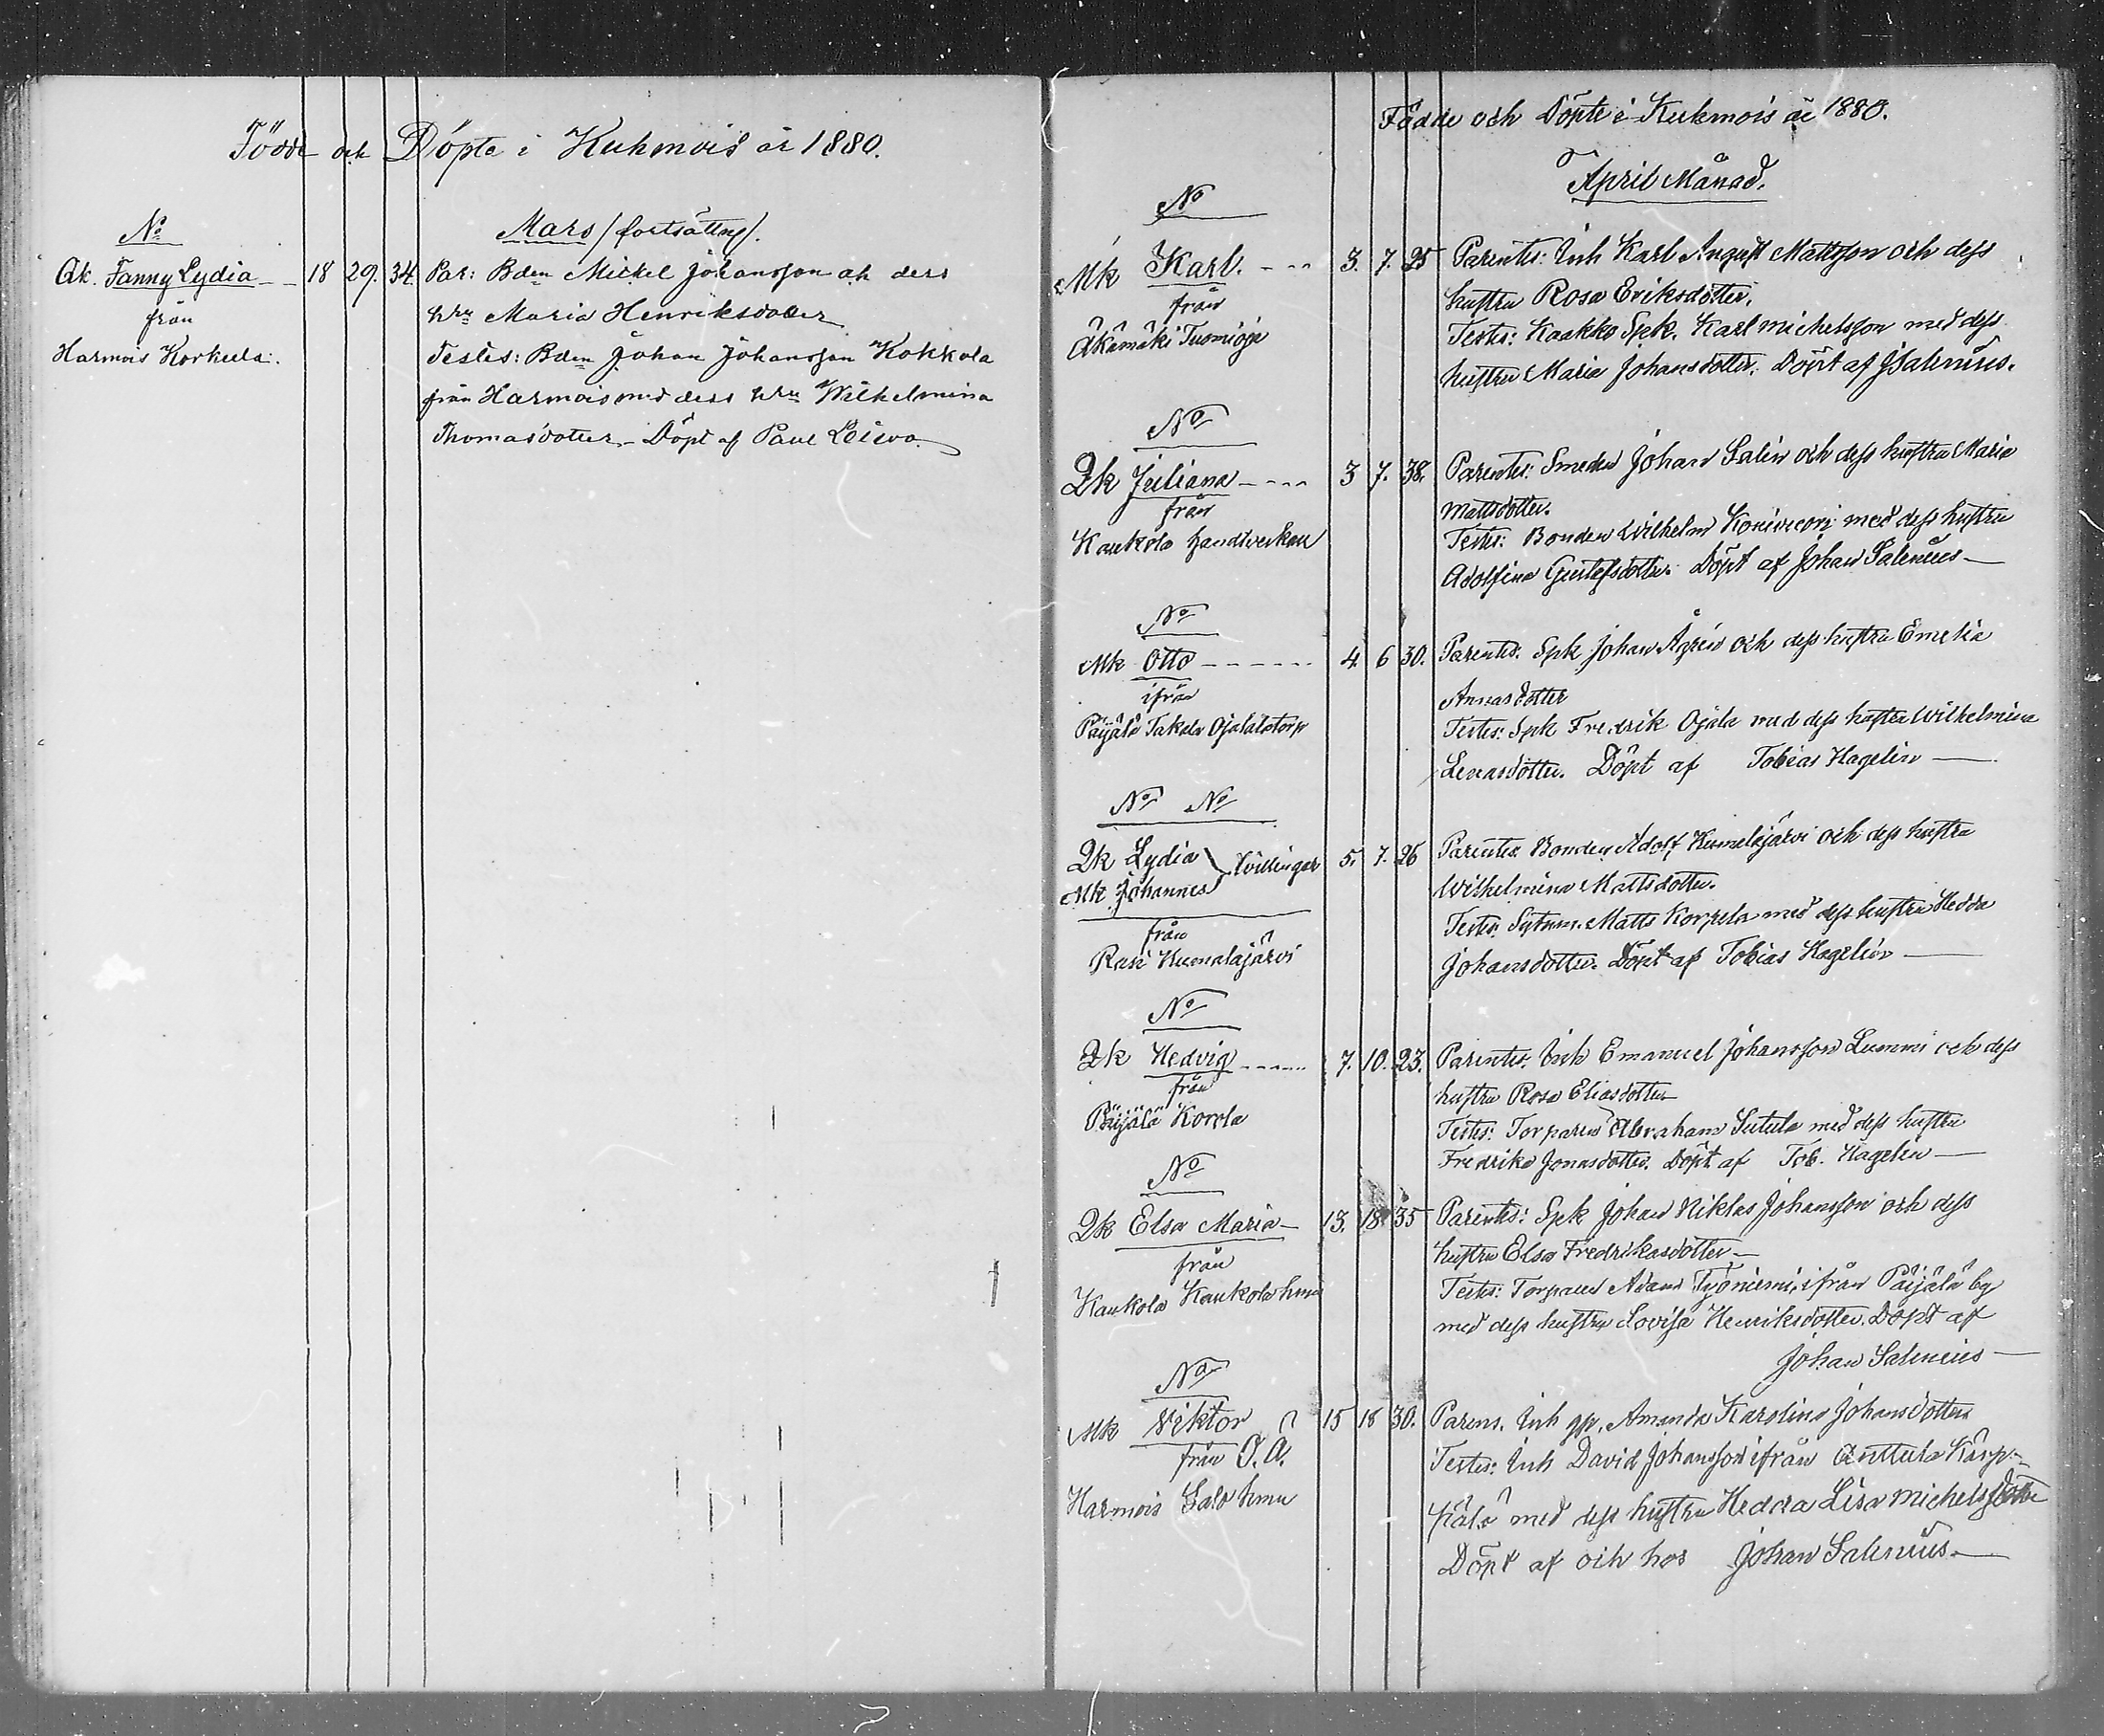 Födde och Döpte i Kuhmois år 1880.
No
Mars / fortsättng/.
Qk. Fanny Lydia 18 29. 34. Par: Bden Mickel Johansson och dess
från
hru Maria Henriksdotter
Harmois Korkula.
Testes: Bden Johan Johansson Kokkola
från Harmois med dess hru Wilhelmina
Thomasdotter - Döpt af Paul Leiwo.
Födde och Döpte i Kuhmois år 1880.
April Månad.
No
Mk Karl. 3. 7. 25 Parentes: Inh Karl August Mattsson och dess
hustru Rosa Eriksdotter.
från
Testes: Kaakko Spk. Karl Michelsson med dess
Åkämäki
hustru Maria Johansdotter. Döpt af J Salenius.
No
Qk Juliana 3 7. 38. Parentes: Smeden Johan Salin och dess hustru Maria
Mattsdotter.
från
Testes: Bonden Wilhelm med dess hustru
Kaukola handtverkare
Adolfina Gustafsdotter. Döpt af Johan Salenius
No
Mk Otto 4. 6 30. Parentes: Spk Johan Ågren och dess hustru Emelia
Annasdotter
ifrån
Testes: Spk Fredrik Ojala med dess hustru Wilhelmina
Päijälä Takala Ojalatorp
Lenasdotter. Döpt af Tobias Hagelin
No No
Qk Lydia
Mk Johannes
Tvillingar 5. 7. 26 Parentes: Bonden Adolf Kumalajärvi och dess hustru
Wilhelmina Mattsdotter.
från
Testes: Sytnm. Matts Korpela med dess hustru Hedda
Rasi Kumalajärvi
Johansdotter. Döpt af Tobias Hagelin
No
Qk Hedvig 7. 10. 23. Parentes: Inh Emanuel Johansson Lummi och dess
hustru Rosa Eliasdotter
från
Testes: Torparen Abraham Sutula med dess hustru
Päijälä
Fredrika Jonasdotter. Döpt af Tob. Hagelin
No
Qk Elsa Maria 13. 18. 35 Parentes: Spk Johan Niklas Johansson och dess
hustru Elsa Fredrikasdotter
från
Testes: Torparen Adam Työniemi ifrån Päijälä by
Kaukola Kaukola hmn
med dess hustru Lovisa Henriksdotter. Döpt af
Johan Salenius
No
Mk Viktor 15 18 30. Parens. Inh gp. Amanda Karolina Johansdotter
från O.Ä.
Testes: Inh David Johansson ifrån Anttula Kärp-
Harmois Salo hmn
pälä med dess hustru Hedda Lisa Michelsdotter
Döpt af och hos Johan Salenius